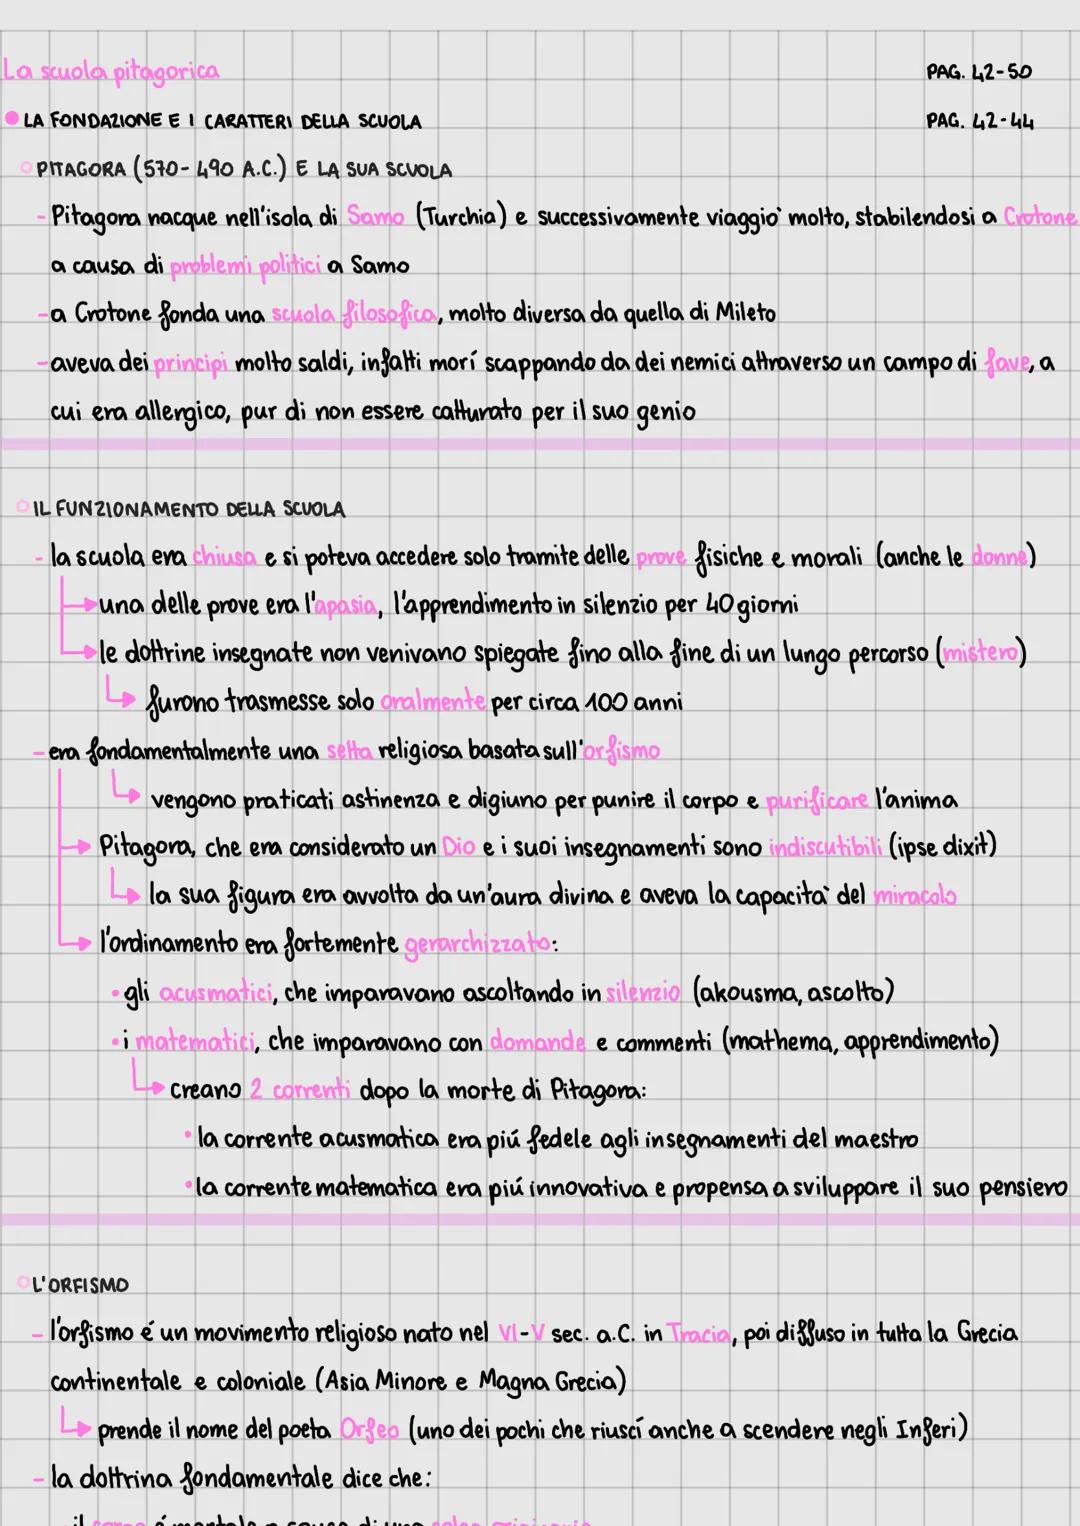 La scuola pitagorica PAG. 42-50
LA FONDAZIONE E I CARATTERI DELLA SCUOLA PAG. 42-44
PITAGORA (570-490 A.C.) E LA SUA SCUOLA
- Pitagora nacque nell'isola di Samo (Turchia) e successivamente viaggiò molto, stabilendosi a Crotone
a causa di problemi politici a Samo
- a Crotone fonda una scuola filosofica, molto diversa da quella di Mileto
- aveva dei principi molto saldi, infatti morí scappando da dei nemici attraverso un campo di fave, a
cui era allergico, pur di non essere catturato per il suo genio
IL FUNZIONAMENTO DELLA SCUOLA
- la scuola era chiusa e si poteva accedere solo tramite delle prove fisiche e morali (anche le donne)
una delle prove era l'apasia, l'apprendimento in silenzio per 40 giorni
le dottrine insegnate non venivano spiegate fino alla fine di un lungo percorso (mistero)
furono trasmesse solo oralmente per circa 100 anni
- era fondamentalmente una setta religiosa basata sull'orfismo
vengono praticati astinenza e digiuno per punire il corpo e purificare l'anima
Pitagora, che era considerato un Dio e i suoi insegnamenti sono indiscutibili (ipse dixit)
la sua figura era avvolta da un'aura divina e aveva la capacità del miracolo
l'ordinamento era fortemente gerarchizzato:
• gli acusmatici, che imparavano ascoltando in silenzio (akousma, ascolto)
• i matematici, che imparavano con domande e commenti (mathema, apprendimento)
creano 2 correnti dopo la morte di Pitagora:
• la corrente acusmatica era piú fedele agli insegnamenti del maestro
• la corrente matematica era piú innovativa e propensa a sviluppare il suo pensiero
L'ORFISMO
- l'orfismo é un movimento religioso nato nel VI-V sec. a.C. in Tracia, poi diffuso in tutta la Grecia
continentale e coloniale (Asia Minore e Magna Grecia)
prende il nome del poeta Orfeo (uno dei pochi che riuscí anche a scendere negli Inferi)
- la dottrina fondamentale dice che: